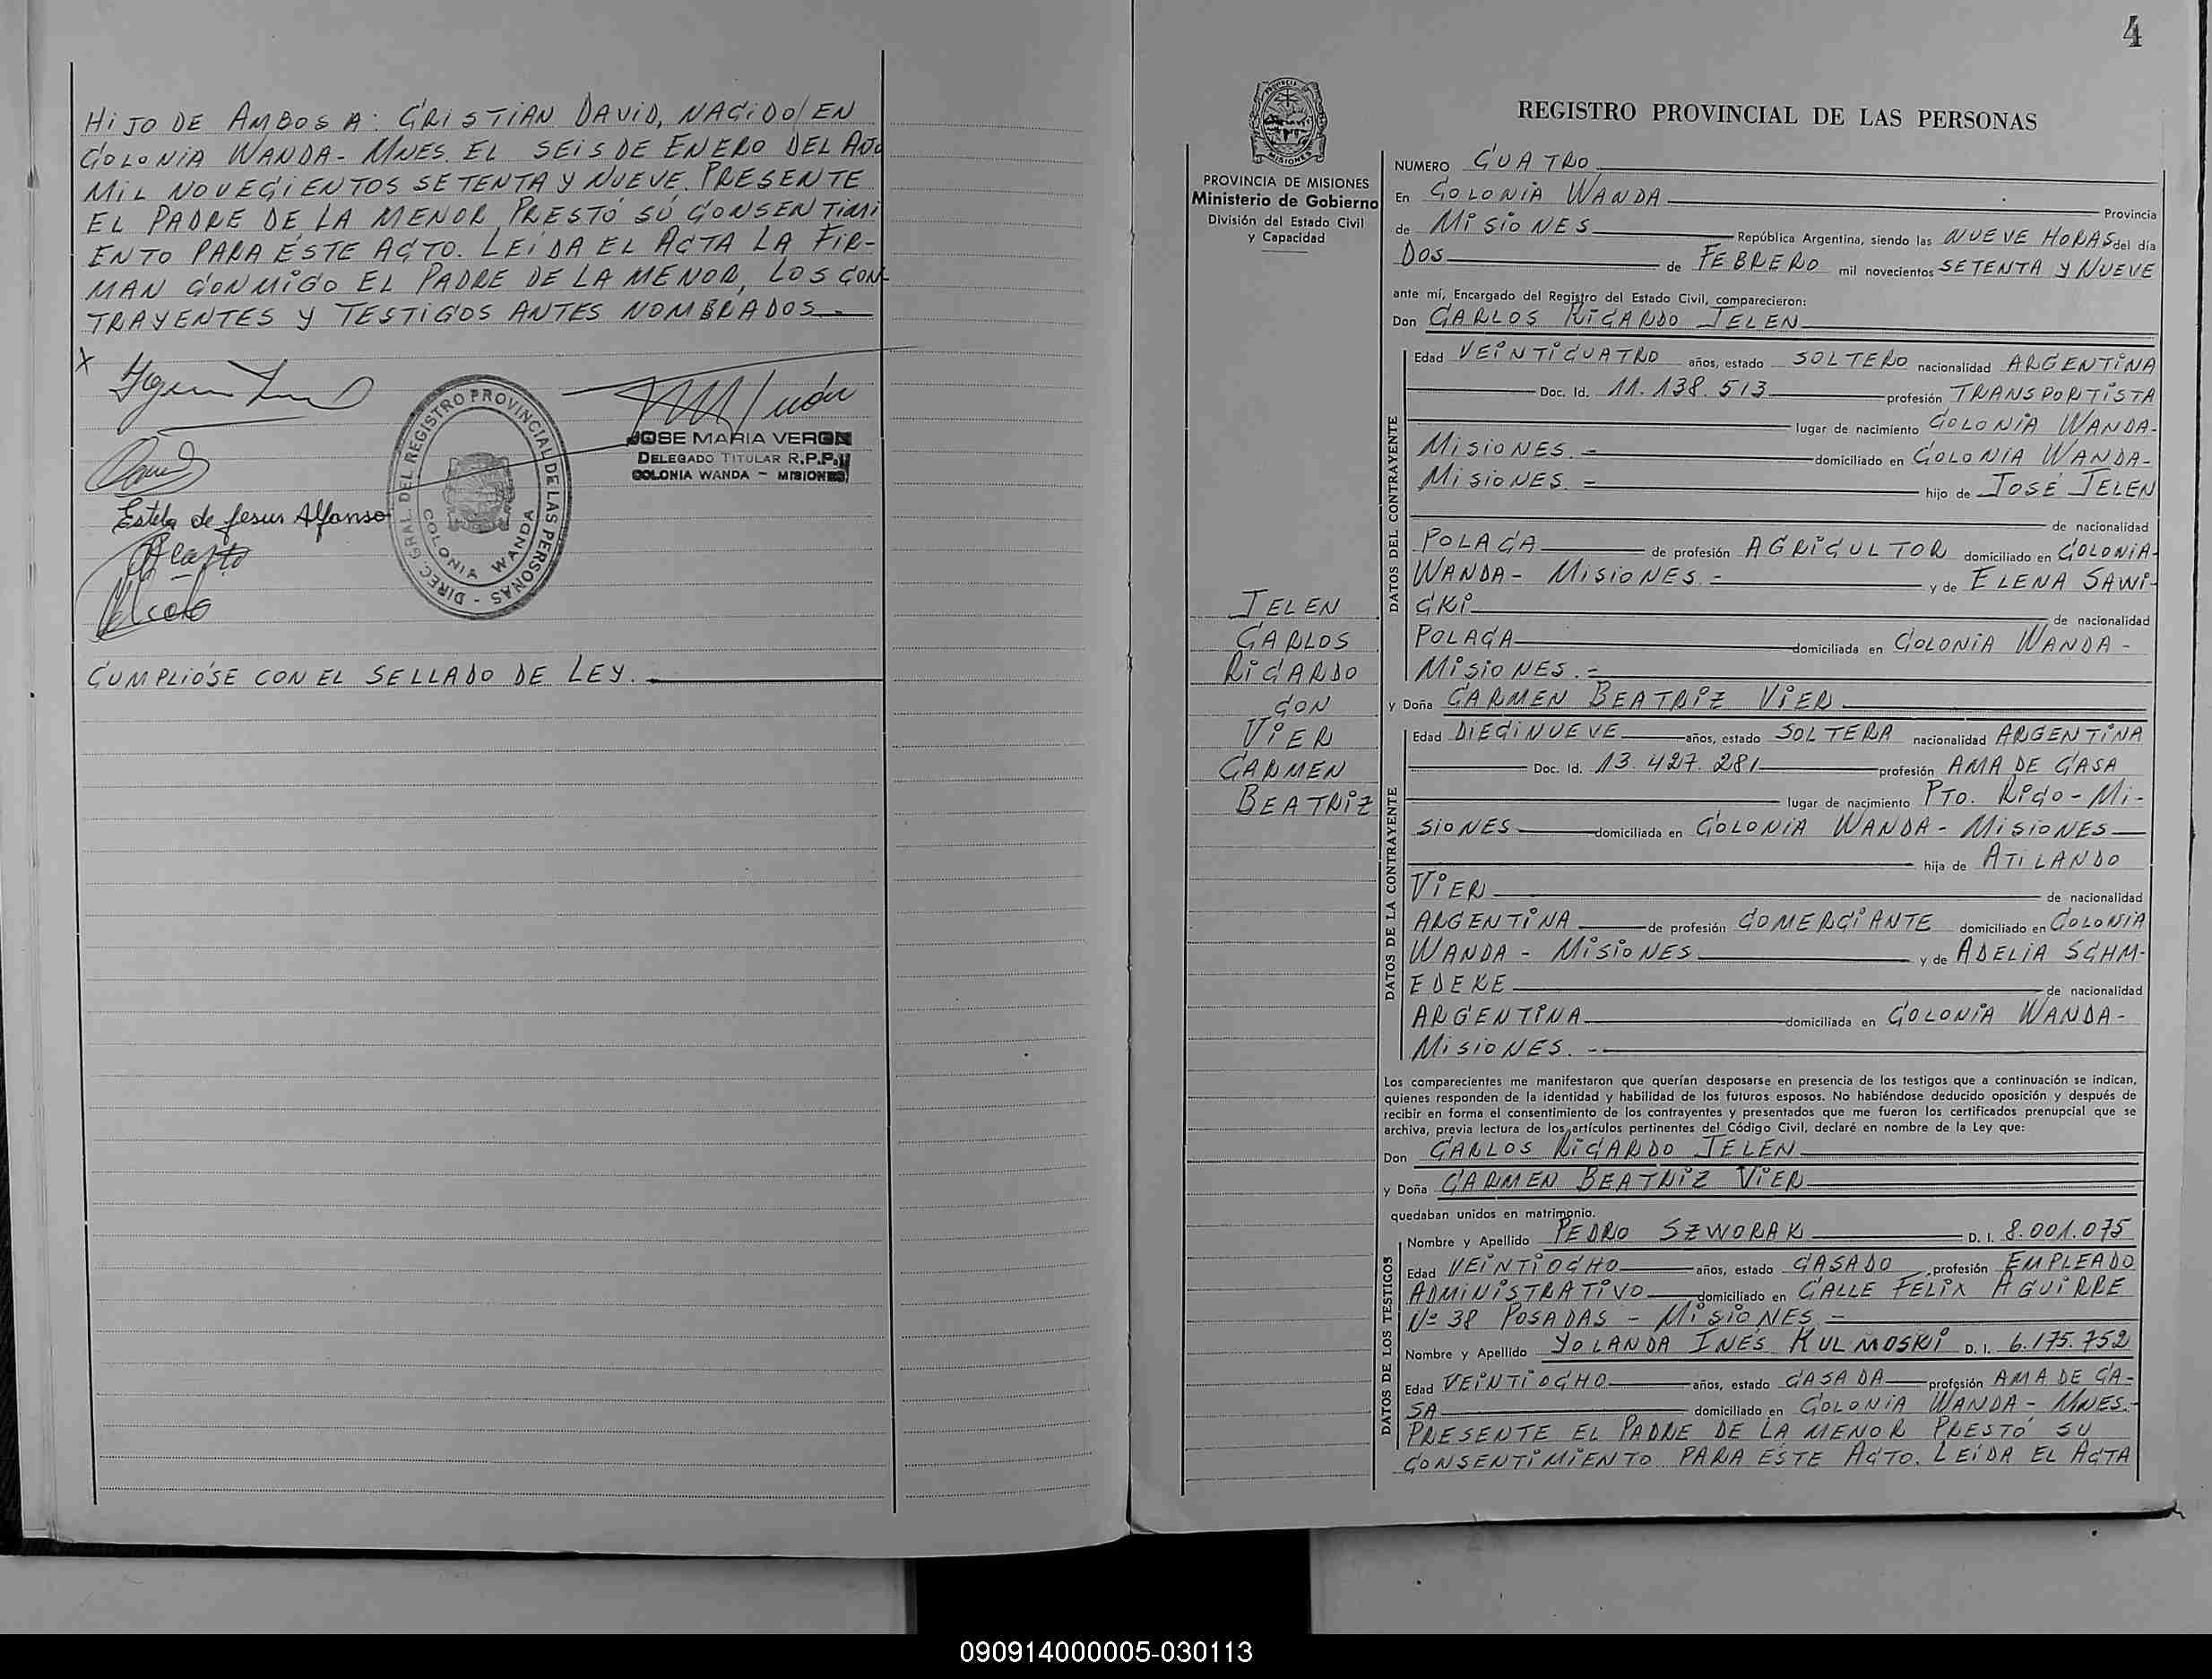 HIJO DE AMBOS A: CRISTIAN DAVID, NACIDO EN
COLONIA WANDA - MNES. EL SEIS DE ENERO DEL AÑO
MIL NOVECIENTOS SETENTA Y NUEVE. PRESENTE
EL PADRE DE LA MENOR PRESTÓ SU CONSENTIMI
ENTO PARA ÉSTE ACTO. LEIDA EL ACTA LA FIR-
MAN CONMIGO EL PADRE DE LA MENOR, LOS CON-
TRAYENTES Y TESTIGOS ANTES NOMBRADOS.-
X
JOSE MARIA VERON
DELEGADO TITULAR R.P.P.
COLONIA WANDA - MISIONES
DIREC. GRAL. DEL REGISTRO PROVINCIAL DE LAS PERSONAS -
COLONIA WANDA
Estela de Jesus Alfonso
CUMPLIÓSE CON EL SELLADO DE LEY.
4
MISIONES
PROVINCIA DE MISIONES
Ministerio de Gobierno
División del Estado Civil
y Capacidad
JELEN
CARLOS
RICARDO
CON
VIER
CARMEN
BEATRIZ
REGISTRO PROVINCIAL DE LAS PERSONAS
NUMERO CUATRO
En COLONIA WANDA Provincia
de MISIONES República Argentina, siendo las NUEVE HORAS del día
DOS de FEBRERO mil novecientos SETENTA Y NUEVE
ante mí, Encargado del Registro del Estado Civil, comparecieron:
Don CARLOS RICARDO JELEN
DATOS DEL CONTRAYENTE
Edad VEINTICUATRO años, estado SOLTERO nacionalidad ARGENTINA
Doc. Id. 11.138.513 profesión TRANSPORTISTA
lugar de nacimiento COLONIA WANDA-
MISIONES.- domiciliado en COLONIA WANDA-
MISIONES.- hijo de JOSÉ JELEN
de nacionalidad
POLACA de profesión AGRICULTOR domiciliado en COLONIA-
WANDA- MISIONES.- y de ELENA SAWI-
CKI de nacionalidad
POLACA domiciliada en COLONIA WANDA-
MISIONES.-
y Doña CARMEN BEATRIZ VIER
DATOS DE LA CONTRAYENTE
Edad DIECINUEVE años, estado SOLTERA nacionalidad ARGENTINA
Doc. Id. 13.427.281 profesión AMA DE CASA
lugar de nacimiento PTO. RICO - MI-
SIONES domiciliada en COLONIA WANDA - MISIONES
hija de ATILANDO
VIER de nacionalidad
ARGENTINA de profesión COMERCIANTE domiciliado en COLONIA
WANDA - MISIONES y de ADELIA SCHM-
EDEKE de nacionalidad
ARGENTINA domiciliada en COLONIA WANDA-
MISIONES.-
Los comparecientes me manifestaron que querían desposarse en presencia de los testigos que a continuación se indican,
quienes responden de la identidad y habilidad de los futuros esposos. No habiéndose deducido oposición y después de
recibir en forma el consentimiento de los contrayentes y presentados que me fueron los certificados prenupcial que se
archiva, previa lectura de los artículos pertinentes del Código Civil, declaré en nombre de la Ley que:
Don CARLOS RICARDO JELEN
y Doña CARMEN BEATRIZ VIER
quedaban unidos en matrimonio.
DATOS DE LOS TESTIGOS
Nombre y Apellido PEDRO SZWORAK D. I. 8.001.075
Edad VEINTIOCHO años, estado CASADO profesión EMPLEADO
ADMINISTRATIVO domiciliado en CALLE FÉLIX AGUIRRE
Nº 38 POSADAS - MISIONES -
Nombre y Apellido YOLANDA INÉS KULMOSKI D. I. 6.175.752
Edad VEINTIOCHO años, estado CASADA profesión AMA DE CA-
SA domiciliado en COLONIA WANDA - MNES.-
PRESENTE EL PADRE DE LA MENOR PRESTÓ SU
CONSENTIMIENTO PARA ÉSTE ACTO. LEÍDA EL ACTA
090914000005-030113